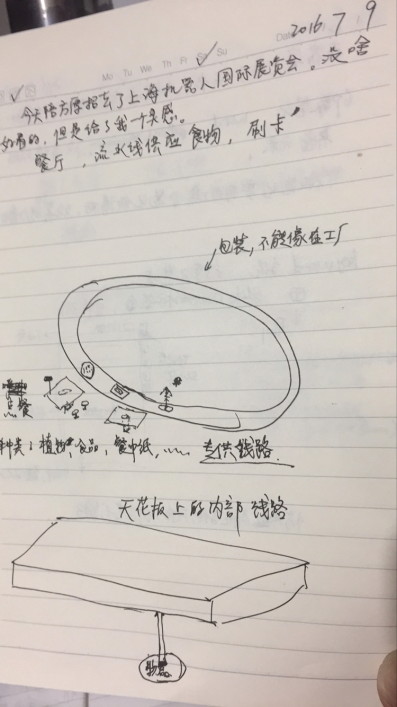 2016 7 9
Mo Tu We Th Fr Sa Su
Date
今天陪方厚招去了上海机器人国际展览会。没啥
好看的，但是给了我一灵感。
餐厅，流水线供应食物，刷卡
包装，不能像在工厂
点餐
种类：植物 食品，餐巾纸，…… 专供线路
天花板上的内部线路
物品